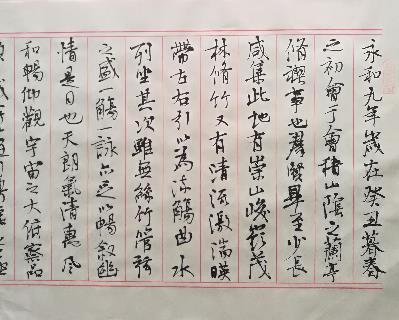 永和九年歲在癸丑暮春
之初會于會稽山陰之蘭亭
脩禊事也羣賢畢至少長
咸集此地有崇山峻領茂
林脩竹又有清流激湍暎
帶左右引以為流觴曲水
列坐其次雖無絲竹管弦
之盛一觴一詠亦足以暢敘幽
情是日也天朗氣清惠風
和暢仰觀宇宙之大俯察品